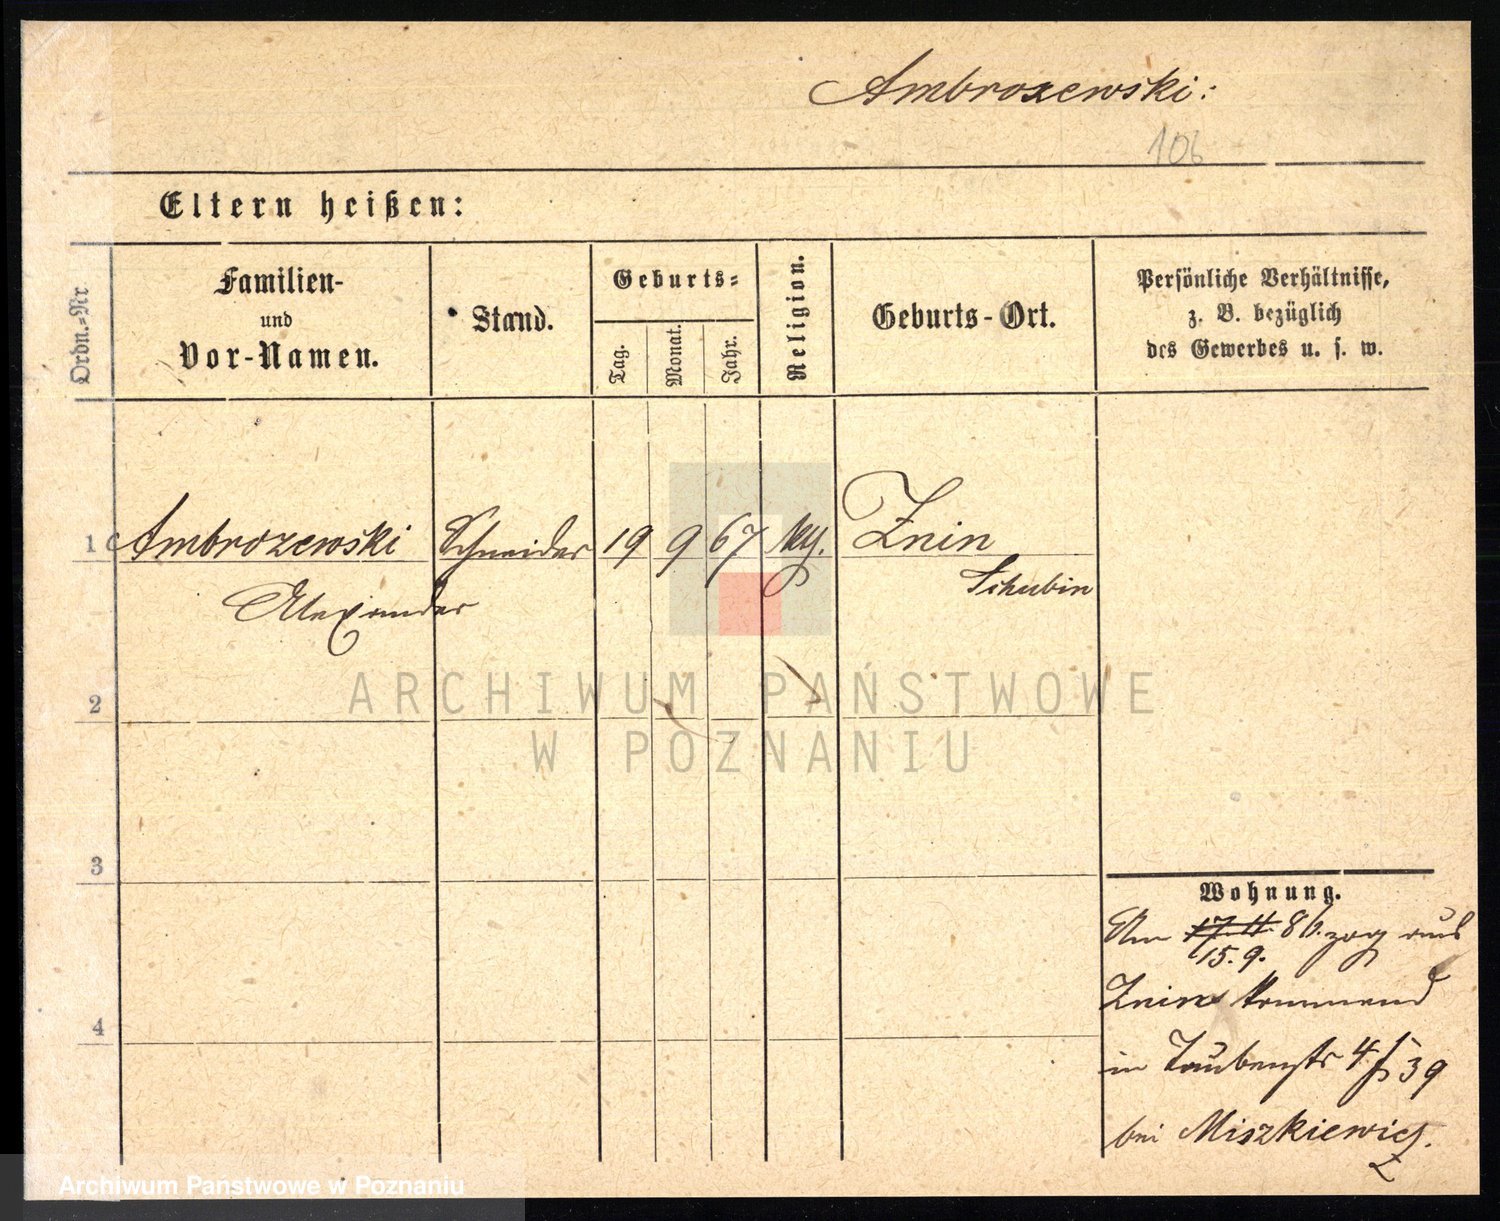 Ambrozewski:
106
Eltern heißen:
Ordn.=Nr
Familien-
und
Vor-Namen.
Stand.
Geburts=
Tag.
Monat.
Jahr.
Religion.
Geburts-Ort.
Persönliche Verhältnisse,
z. B. bezüglich
des Gewerbes u. s. w.
1 Ambrozewski Schneider 19 9 67 Znin
Alexander Schubin
2
ARCHIWUM PAŃSTWOWE
W POZNANIU
3
4
Wohnung.
Am 17. 11. 86. zog aus
15. 9.
Znin kommend
in Taubenstr 4 39
bei Miszkiewicz.
Archiwum Państwowe w Poznaniu